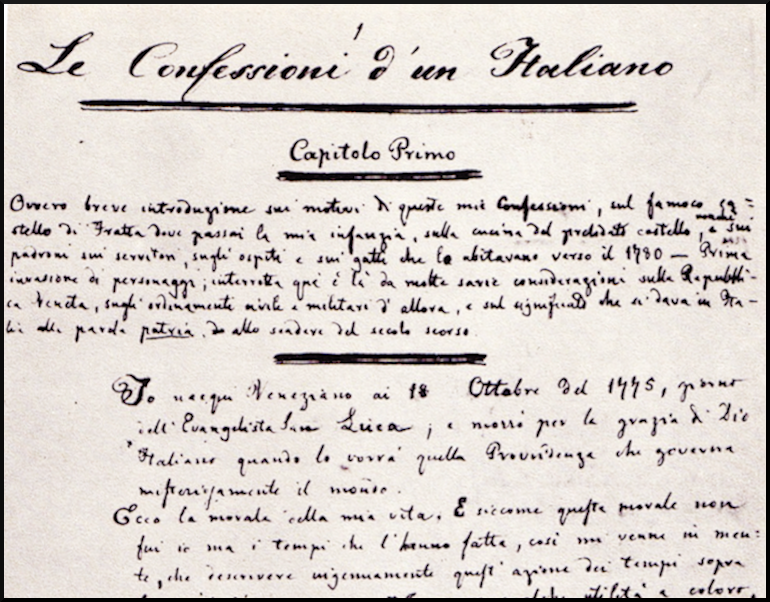 1
Le Confessioni d'un Italiano
Capitolo Primo
Ovvero breve introduzione sui motivi di queste mie Confessioni, sul famoso ca=
stello di Fratta dove passai la mia infanzia, sulla cucina del prelodato castello,
padroni sui servitori, sugli ospiti e sui gatti che lo abitavano verso il 1780 — Prima
invasione di personaggi; interrotta qua e là da molte savie considerazioni sulla Repubbli-
ca Veneta, sugli ordinamenti civili e militari d'allora, e sul significato che si dava in Ita-
lia alla parola patria, allo scadere del secolo scorso.
Io nacqui Veneziano ai 18 Ottobre del 1775, giorno
dell'Evangelista San Luca; e morrò per la grazia di Dio
Italiano quando lo vorrà quella Provvidenza che governa
misteriosamente il mondo.
Ecco la morale della mia vita. E siccome questa morale non
fui io ma i tempi che l'hanno fatta, così mi venne in men-
te, che descrivere ingenuamente quest'azione dei tempi sopra
utilità a coloro,